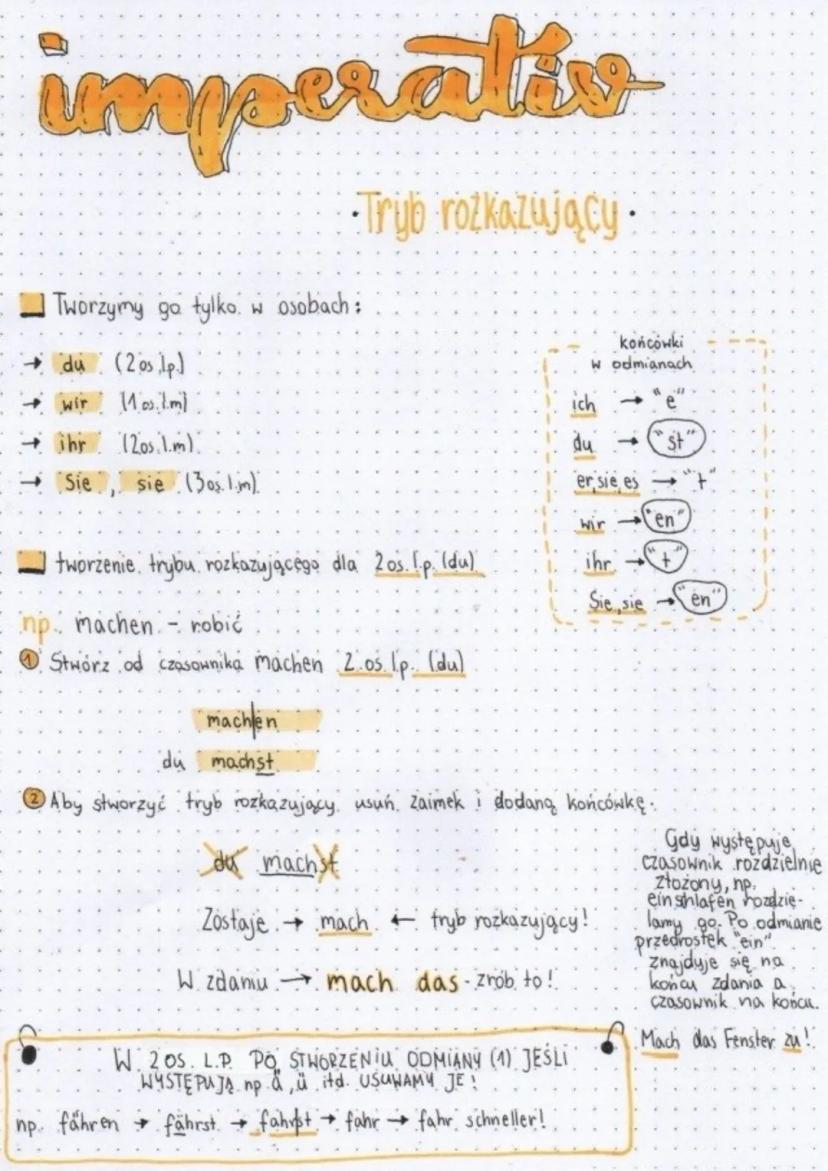 imperativ
· Tryb rozkazujący ·
Tworzymy go tylko w osobach:
→ du (2 os. l.p.)
→ wir (1 os. l.m)
→ ihr (2os. l.m)
→ Sie, sie (3 os. l.m)
końcówki
w odmianach
ich → "e"
du → "st"
er, sie, es → "t"
wir → "en"
ihr → "t"
Sie, sie → "en"
tworzenie trybu rozkazującego dla 2 os. l.p. (du)
np. machen - robić
1 Stwórz od czasownika machen 2. os. l.p. (du)
mach|en
du machst
2 Aby stworzyć tryb rozkazujący usuń zaimek i dodaną końcówkę.
du machst
Zostaje → mach ← tryb rozkazujący!
W zdaniu → mach das - zrób to!
Gdy występuje
czasownik rozdzielnie
złożony, np.
einschlafen rozdzie-
lamy go. Po odmianie
przedrostek "ein"
znajduje się na
końcu zdania a
czasownik na końcu.
Mach das Fenster zu!
W 2 OS. L.P. PO STWORZENIU ODMIANY (1) JEŚLI
WYSTĘPUJĄ np ä, ü itd. USUWAMY JE!
np. fähren → fährst → fahrst → fahr → fahr schneller!